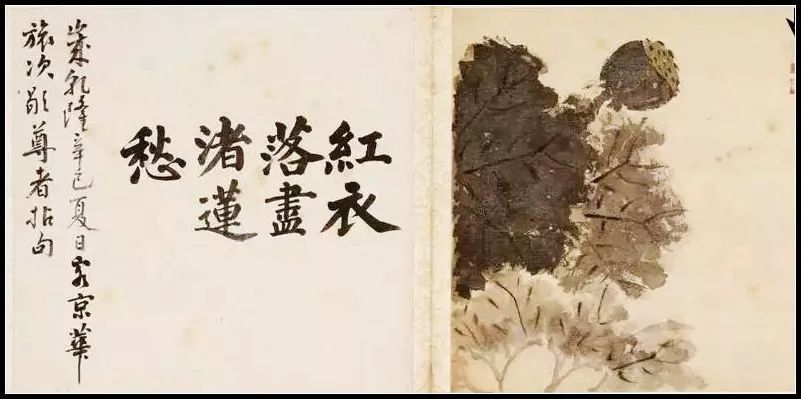 紅衣
落盡
渚蓮
愁
歲乾隆辛巳夏日客京華
旅次歇尊者拈句